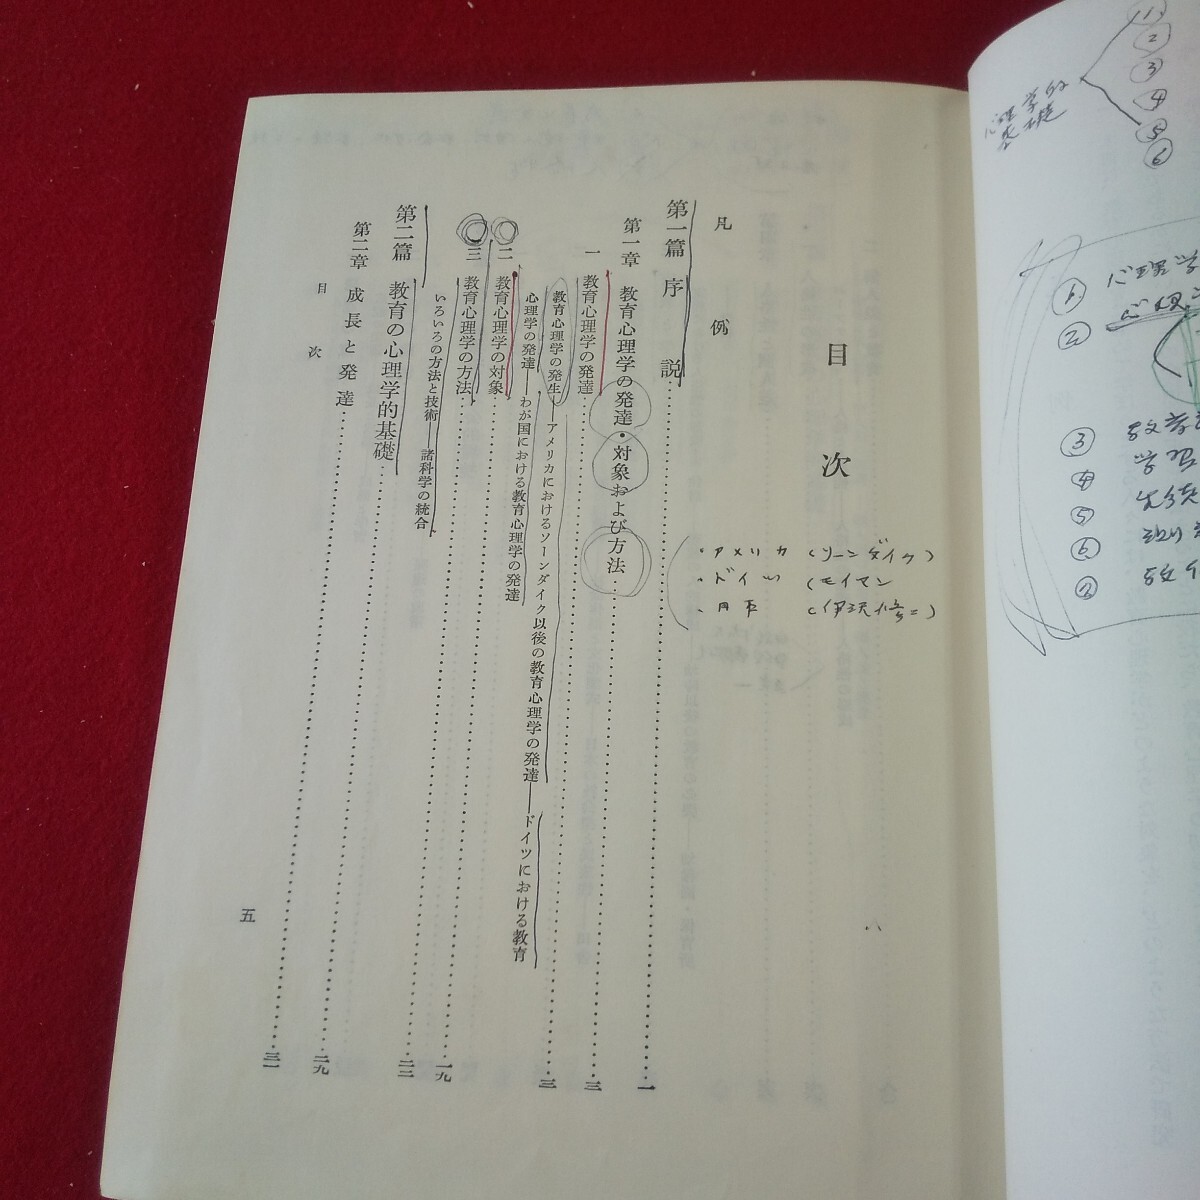 目次
凡例
第一篇 序説………一
第一章 教育心理学の発達・対象および方法………三
一 教育心理学の発達………三
教育心理学の発生――アメリカにおけるソーンダイク以後の教育心理学の発達――ドイツにおける教育
心理学の発達――わが国における教育心理学の発達
二 教育心理学の対象………一九
三 教育心理学の方法………二二
いろいろの方法と技術――諸科学の統合
第二篇 教育の心理学的基礎………二九
第二章 成長と発達………三一
目次
五
・アメリカ (ソーンダイク)
・ドイツ (モイマン
・日本
心理学的
基礎
①
②
③
④
⑤
⑥
①
②
③
④
学習
⑤
⑥